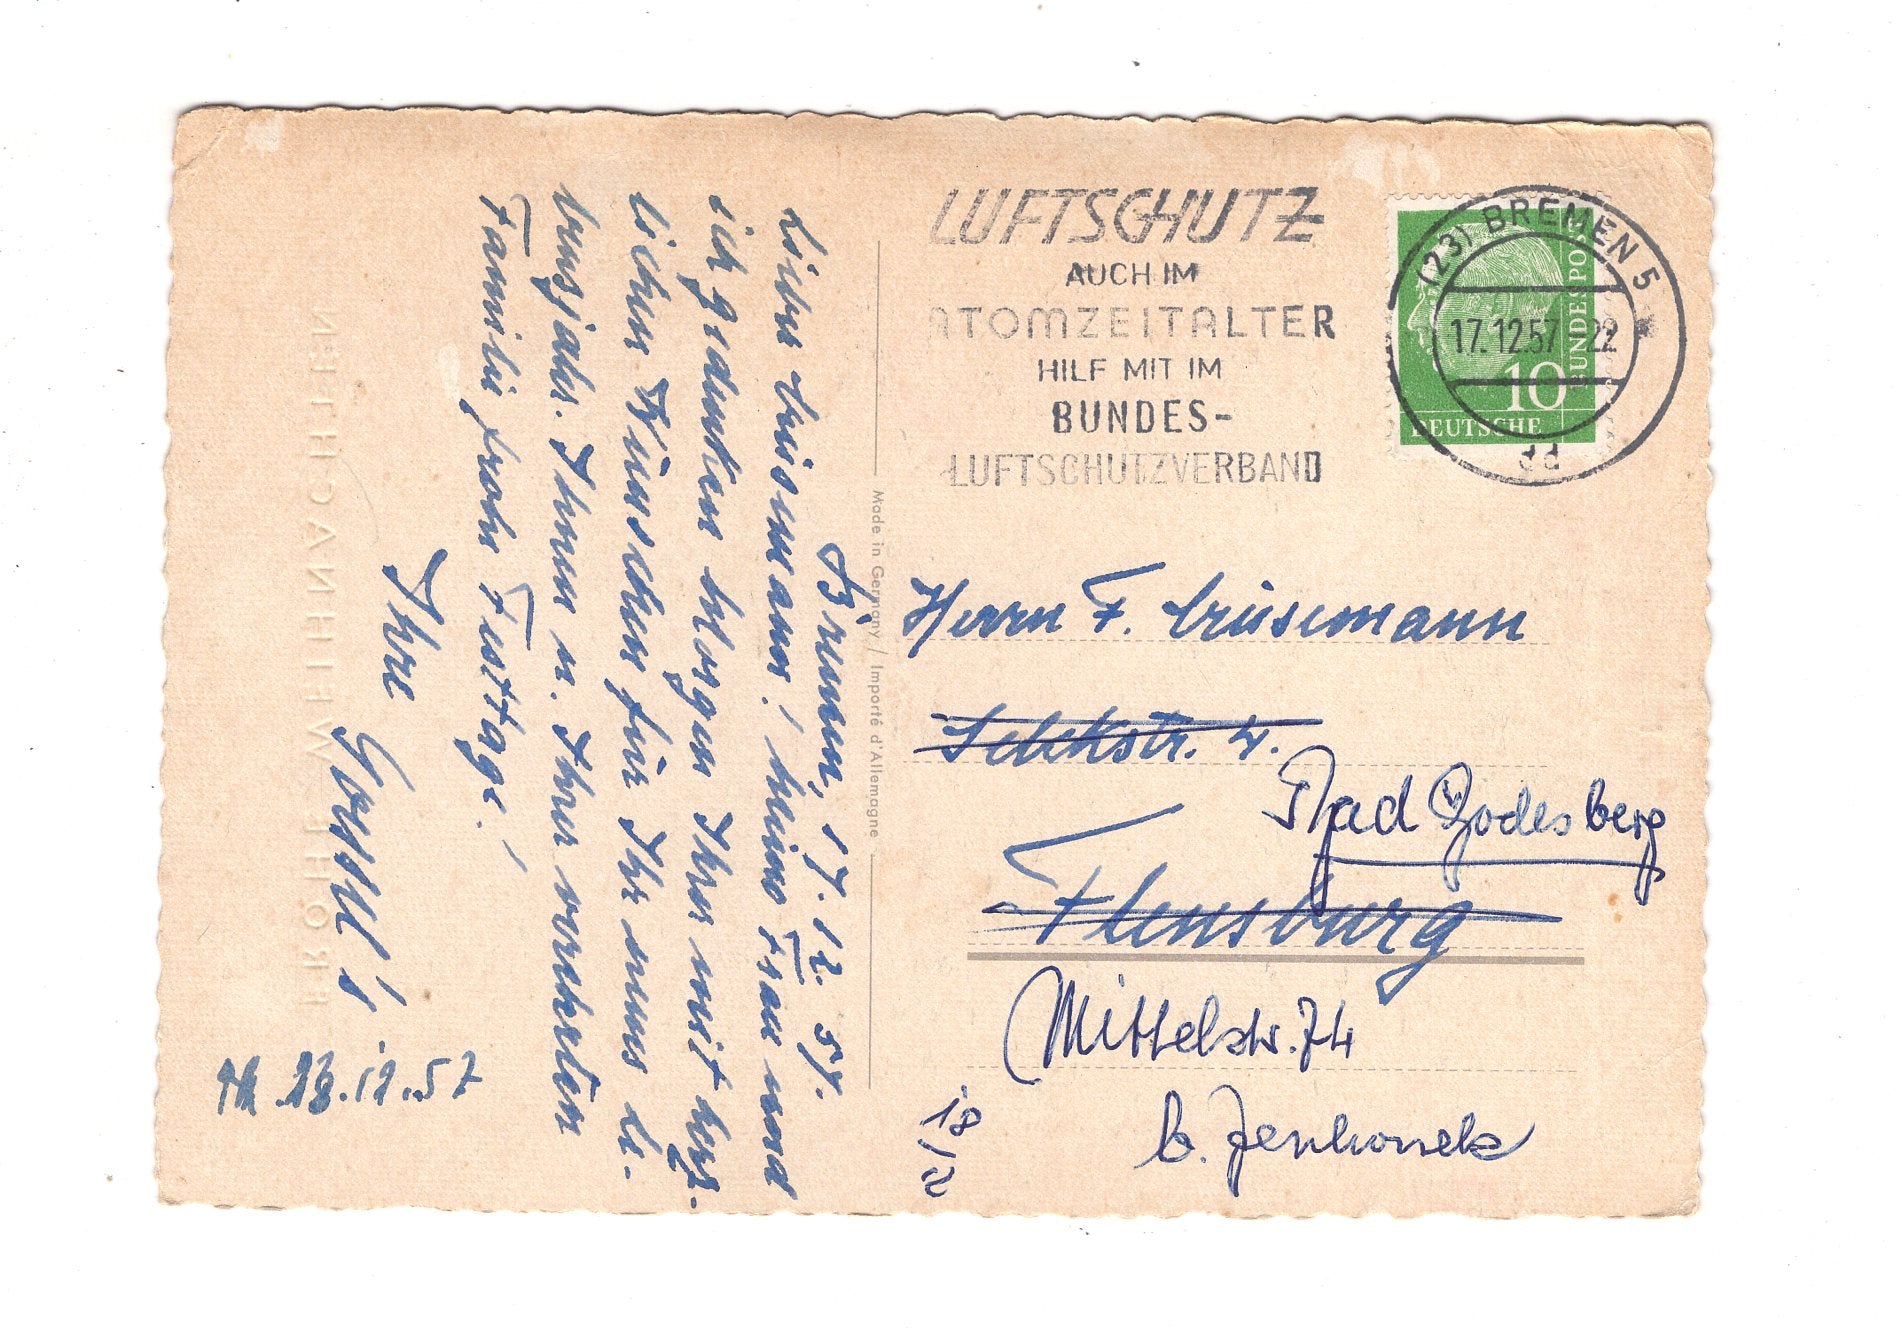 Bremen, 17.12.57.
Lieber Crüsemann! Meine Frau und
ich gedenken morgen Ihrer mit herz-
lichen Wünschen für Ihr neues Le-
bensjahr. Ihnen u. Ihrer verehrten
Familie frohe Festtage!
Ihre
13.12.57
FROHE WEIHNACHTEN
Made in Germany / Importé d'Allemagne
LUFTSCHUTZ
AUCH IM
ATOMZEITALTER
HILF MIT IM
BUNDES-
LUFTSCHUTZVERBAND
(23) BREMEN 5
17.12.57 -22
dd
10
DEUTSCHE
BUNDESPOST
Herrn F. Crüsemann
4.
Bad Godesberg
Flensburg
Mittelstr. 74
b.
18/2